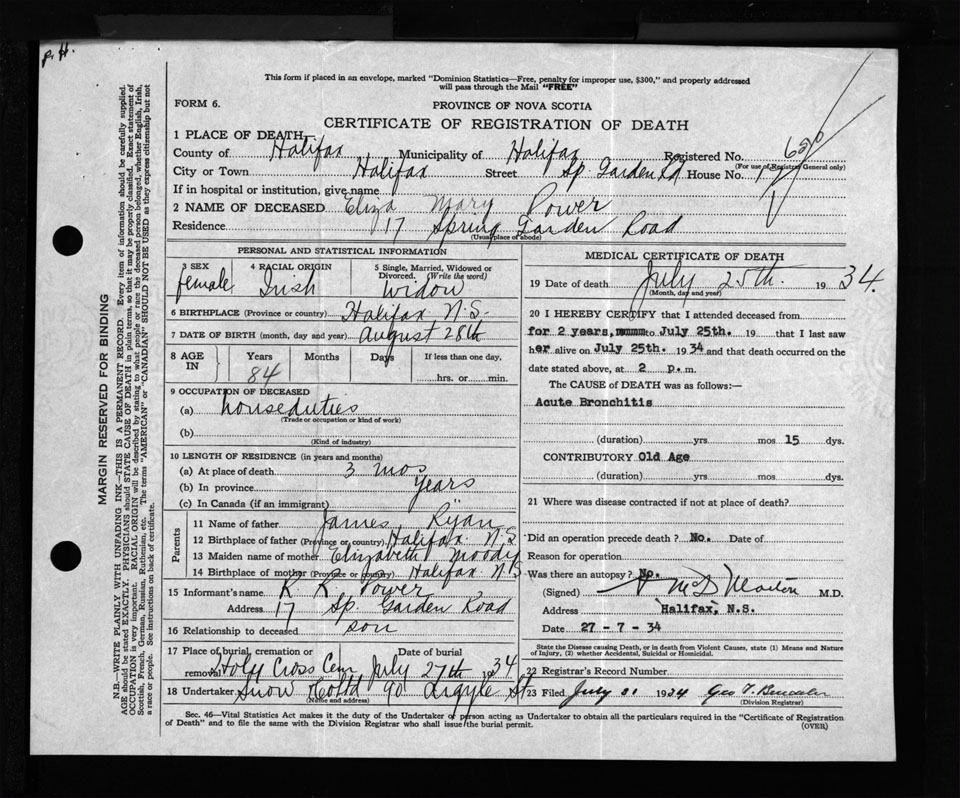 P. H.
This form if placed in an envelope, marked "Dominion Statistics—Free, penalty for improper use, $300," and properly addressed
will pass through the Mail "FREE"
FORM 6.
PROVINCE OF NOVA SCOTIA
CERTIFICATE OF REGISTRATION OF DEATH
1 PLACE OF DEATH
County of Halifax Municipality of Halifax Registered No.
(For use of Registrar General only)
City or Town Halifax Street Sp. Garden Rd House No. 17
If in hospital or institution, give name
2 NAME OF DECEASED Eliza Mary Power
Residence 17 Spring Garden Road
(Usual place of abode)
PERSONAL AND STATISTICAL INFORMATION
3 SEX female
4 RACIAL ORIGIN Irish
5 Single, Married, Widowed or Divorced. (Write the word) widow
6 BIRTHPLACE (Province or country) Halifax N.S.
7 DATE OF BIRTH (month, day and year) August 28th
8 AGE IN Years 84 Months Days If less than one day, hrs. or min.
9 OCCUPATION OF DECEASED
(a) houseduties
(Trade or occupation or kind of work)
(b)
(Kind of industry)
10 LENGTH OF RESIDENCE (in years and months)
(a) At place of death 3 mos
(b) In province years
(c) In Canada (if an immigrant)
Parents
11 Name of father James Ryan
12 Birthplace of father (Province or country) Halifax N.S
13 Maiden name of mother Elizabeth Moody
14 Birthplace of mother (Province or country) Halifax N.S
15 Informant's name K. K. Power
Address 17 Sp. Garden Road
16 Relationship to deceased son
17 Place of burial, cremation or removal Holy Cross Cem Date of burial July 27th 1934
18 Undertaker Snow Co Ltd 90 Argyle St
(Name and address)
MEDICAL CERTIFICATE OF DEATH
19 Date of death July 25th. 1934.
(Month, day and year)
20 I HEREBY CERTIFY that I attended deceased from
for 2 years, to July 25th. 19 that I last saw
her alive on July 25th. 1934 and that death occurred on the
date stated above, at 2 p.m.
The CAUSE of DEATH was as follows:—
Acute Bronchitis
(duration) yrs mos 15 dys.
CONTRIBUTORY Old Age
(duration) yrs mos dys.
21 Where was disease contracted if not at place of death?
Did an operation precede death? No. Date of
Reason for operation
Was there an autopsy? No.
(Signed) M.D.
Address Halifax, N.S.
Date 27 - 7 - 34
State the Disease causing Death, or in death from Violent Causes, state (1) Means and Nature
of Injury, (2) whether Accidental, Suicidal or Homicidal.
22 Registrar's Record Number
23 Filed July 31 1934 Geo T.
(Division Registrar)
Sec. 46—Vital Statistics Act makes it the duty of the Undertaker or person acting as Undertaker to obtain all the particulars required in the "Certificate of Registration
of Death" and to file the same with the Division Registrar who shall issue the burial permit.
(OVER)
MARGIN RESERVED FOR BINDING
N.B.—WRITE PLAINLY WITH UNFADING INK—THIS IS A PERMANENT RECORD. Every item of information should be carefully supplied.
AGE should be stated EXACTLY. PHYSICIANS should STATE CAUSE OF DEATH in plain terms, so that it may be properly classified. Exact statement of
OCCUPATION is very important. RACIAL ORIGIN will be described by stating to what people or race the deceased person belonged, whether English, Irish,
Scottish, French, German, Russian, Ruthenian, etc. The terms "AMERICAN" or "CANADIAN" SHOULD NOT BE USED as they express citizenship but not
a race or people. See instructions on back of certificate.